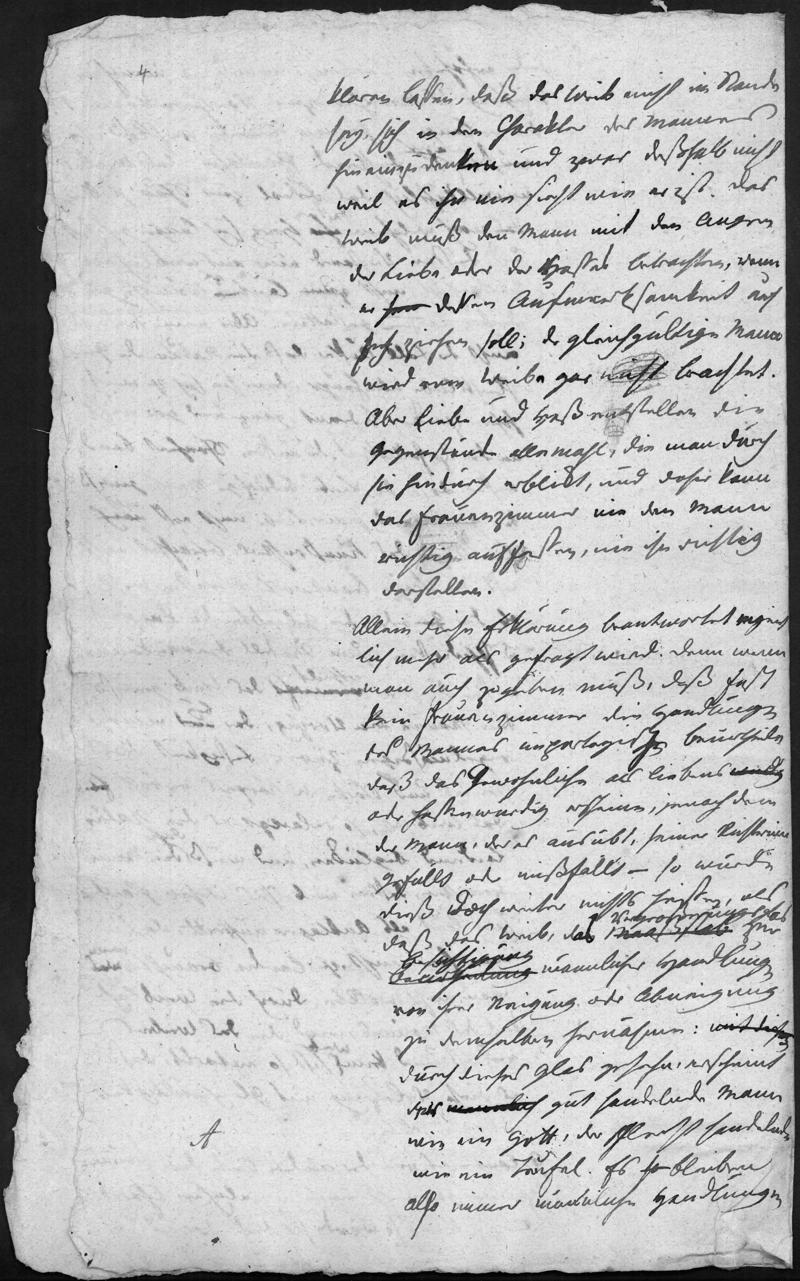 4
klären lassen, daß das Weib nicht im Stande
sey, sich in den Charakter des Mannes
hineinzudenken und zwar deßhalb nicht
weil es ihn nie sieht wie er ist. Das
Weib muß den Mann mit den Augen
der Liebe oder des Hasses betrachten, wenn
er dessen Aufmerksamkeit auf
sich ziehen soll; der gleichgültige Mann
wird vom Weibe gar nicht beachtet.
Aber Liebe und Haß entstellen die
Gegenstände allemahl, die man durch
sie hindurch erblickt, und daher kann
das Frauenzimmer nie den Mann
richtig auffassen, nie ihn richtig
darstellen.
Allein diese Erklärung beantwortet eigent
lich mehr als gefragt wird. Denn wenn
man auch zugeben muß, daß fast
kein Frauenzimmer die Handlungen
des Mannes unparteyisch beurtheile
daß das Gewöhnliche als liebens
oder hassenswürdig erscheine, jenachdem
der Mann, der es ausübt, seiner Richterinn
gefällt oder mißfällt — so würde
dieß doch weiter nichts heißen, als
daß das Weib, das Vergrößerungsglas zur
Besichtigung
männlicher Handlungen
von ihrer Neigung oder Abneigung
zu demselben hernähme:
durch dieses Glas gesehen, erscheint
der gut handelnde Mann
wie ein Gott, der schlecht handelnde
wie ein Teufel. Es bleiben
also immer männliche Handlungen
A